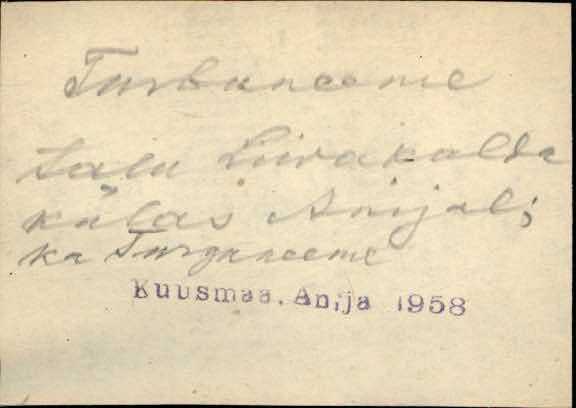 Turbuneeme
talu Liivakalda
külas Anijal;
ka Turguneeme
Kuusmaa, Anija 1958